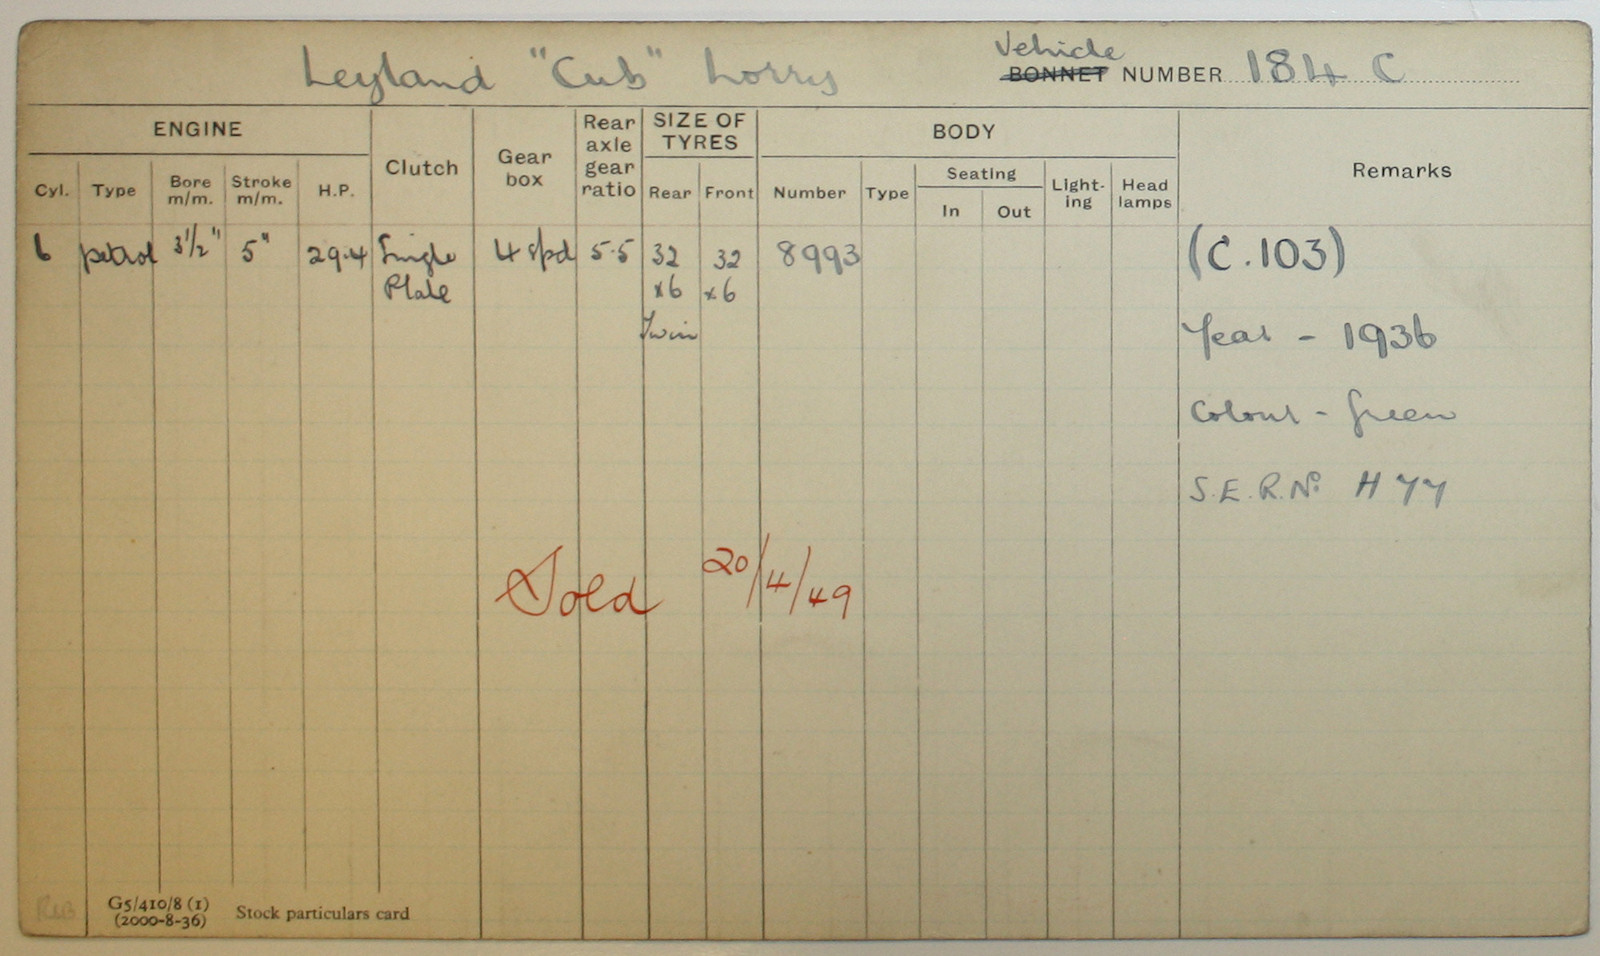 Leyland "Cub" Lorry
Vehicle
BONNET NUMBER 184 C
ENGINE
Cyl. Type Bore m/m. Stroke m/m. H.P.
Clutch
Gear box
Rear axle gear ratio
SIZE OF TYRES
Rear Front
BODY
Number Type
Seating
In Out
Light-ing
Head lamps
Remarks
6 petrol 3½" 5" 29.4 Single 4 spd 5.5 32 32 8993
Plate x6 x6
Twin
(C.103)
Year - 1936
Colour - Green
S.E.R.No. H 77
Sold 20/4/49
G5/410/8 (1)
(2000-8-36)
Stock particulars card